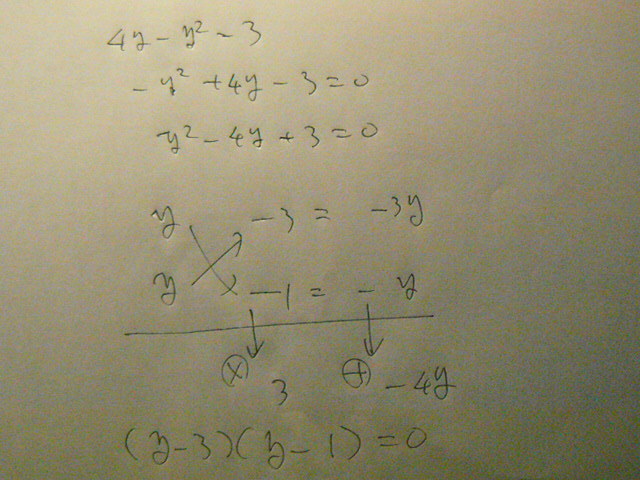 4y - y² - 3
- y² + 4y - 3 = 0
y² - 4y + 3 = 0
y -3 = -3y
y -1 = - y
⊗ 3 ⊕ -4y
(y-3)(y-1) = 0